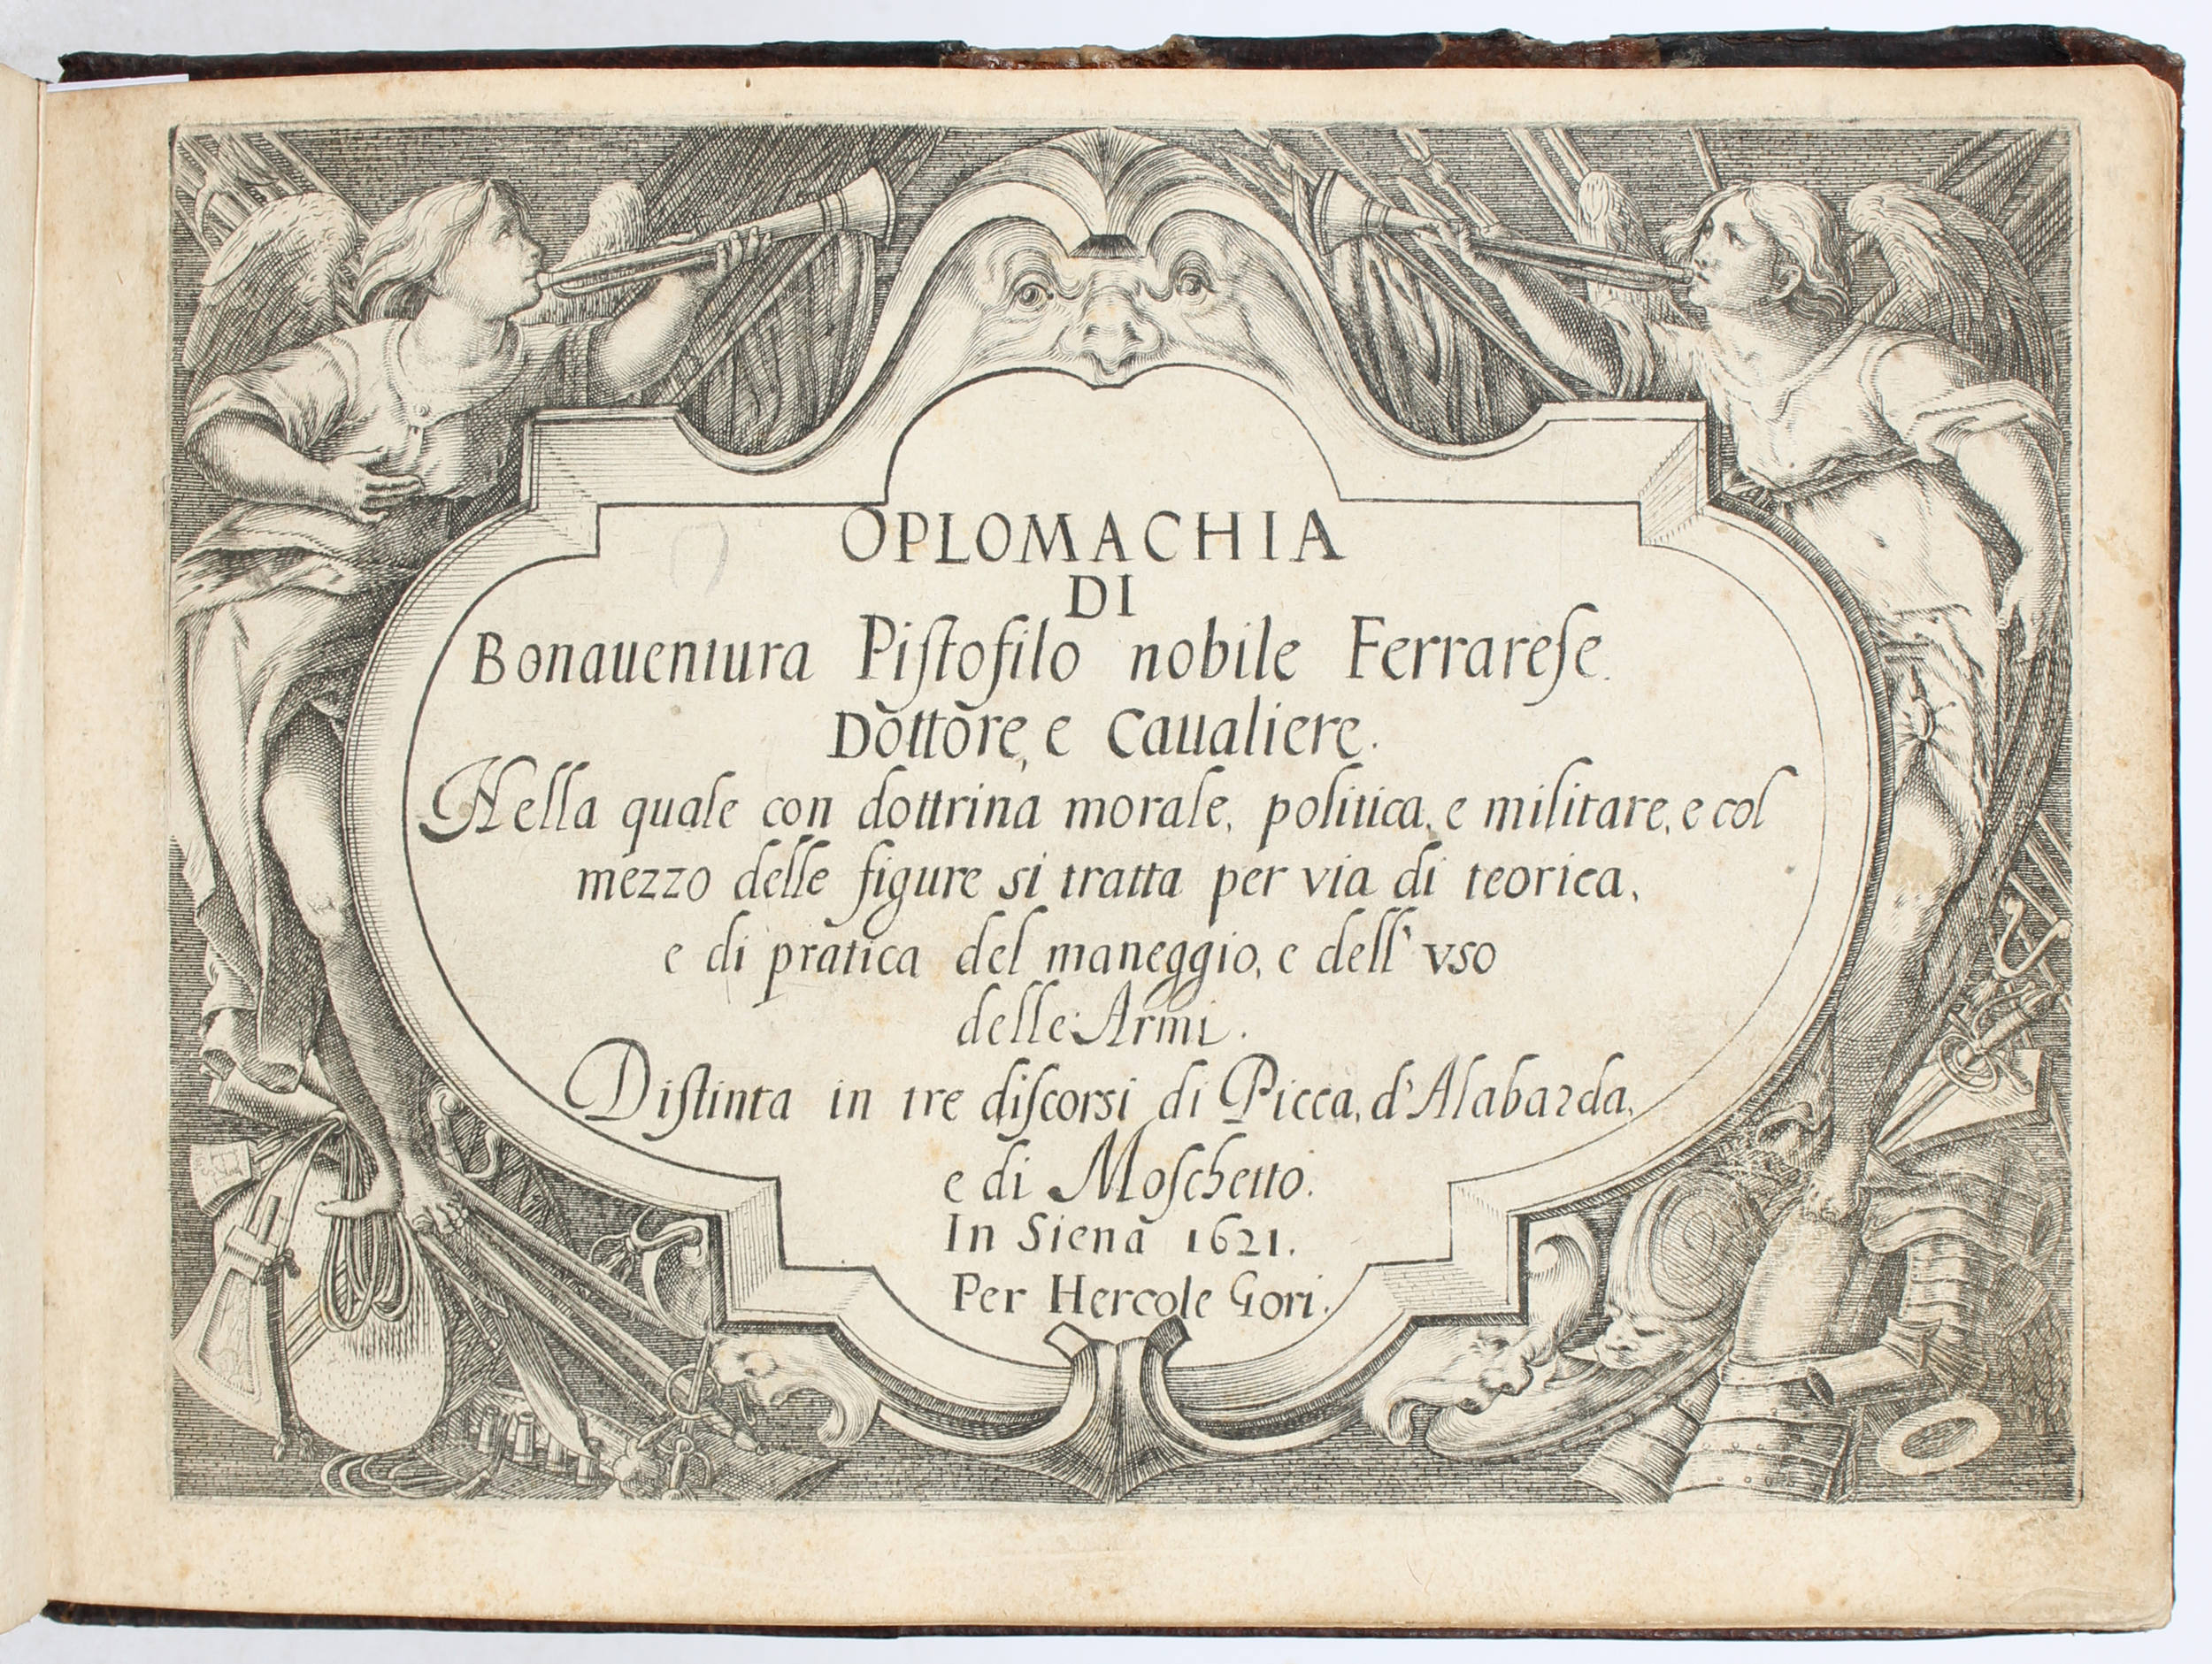 OPLOMACHIA
DI
Bonauentura Piſtofilo nobile Ferrareſe.
Dottore, e Caualiere.
Nella quale con dottrina morale, politica, e militare, e col
mezzo delle figure si tratta per via di teorica,
e di pratica del maneggio, e dell' vso
delle Armi.
Diſtinta in tre diſcorsi di Picca, d'Alabarda,
e di Moſchetto.
In Siena 1621.
Per Hercole Gori.